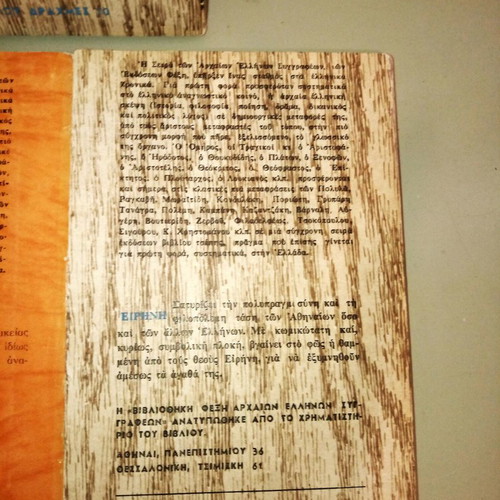 ΔΡΑΧΜΕΣ 10
Ἡ Σειρὰ τῶν Ἀρχαίων Ἑλλήνων Συγγραφέων, τῶν
Ἐκδόσεων Φέξη, ὑπῆρξεν ἕνας σταθμὸς στὰ ἑλληνικὰ
χρονικά. Γιὰ πρώτη φορὰ προσφερόταν συστηματικὰ
στὸ ἑλληνικὸ ἀναγνωστικὸ κοινό, ἡ ἀρχαία ἑλληνικὴ
σκέψη (ἱστορία, φιλοσοφία, ποίηση, δρᾶμα, δικανικὸς
καὶ πολιτικὸς λόγος) σὲ δημιουργικὲς μεταφορές της,
ἀπὸ τοὺς ἄριστους μεταφραστὲς τοῦ τόπου, στὴν πιὸ
σύγχρονη μορφὴ ποὺ πῆρε, ἐξελισσόμενο, τὸ γλωσσικό
της ὄργανο. Ὁ Ὅμηρος, οἱ Τραγικοὶ κι ὁ Ἀριστοφά-
νης, ὁ Ἡρόδοτος, ὁ Θουκυδίδης, ὁ Πλάτων, ὁ Ξενοφῶν,
ὁ Ἀριστοτέλης, ὁ Θεόκριτος, ὁ Θεόφραστος, ὁ Ἐπί-
κτητος, ὁ Πλούταρχος, ὁ Λουκιανὸς κλπ. προσφέρονται
καὶ σήμερα στὶς κλασικὲς πιὰ μεταφράσεις τῶν Πολυλᾶ,
Ραγκαβῆ, Μωραϊτίδη, Κονδυλάκη, Ποριώτη, Γρυπάρη
Τανάγρα, Πολέμη, Καζαντζάκη, Βάρναλη, Αὐ-
γέρη, Βουτιερίδη, Ζερβοῦ, Φιλαδελφέως, Τσοκόπουλου,
Σιγούρου, Κ. Χρηστομάνου κλπ. σὲ μιὰ σύγχρονη σειρὰ
ἐκδόσεων βιβλίου τσέπης, πρᾶγμα ποὺ ἐπίσης γίνεται
γιὰ πρώτη φορά, συστηματικά, στὴν Ἑλλάδα.
ΕΙΡΗΝΗ Σατυρίζει τὴν πολυπραγμοσύνη καὶ τὴ
φιλοπόλεμη τάση τῶν Ἀθηναίων ὅσο
καὶ τῶν ἄλλων Ἑλλήνων. Μὲ κωμικώτατη καί,
κυρίως, συμβολικὴ πλοκή, βγαίνει στὸ φῶς ἡ θαμ-
μένη ἀπὸ τοὺς θεοὺς Εἰρήνη, γιὰ νὰ ἐξυμνηθοῦν
ἀμέσως τὰ ἀγαθά της.
Η «ΒΙΒΛΙΟΘΗΚΗ ΦΕΞΗ ΑΡΧΑΙΩΝ ΕΛΛΗΝΩΝ ΣΥΓ-
ΓΡΑΦΕΩΝ» ΑΝΑΤΥΠΩΘΗΚΕ ΑΠΟ ΤΟ ΧΡΗΜΑΤΙΣΤΗ-
ΡΙΟ ΤΟΥ ΒΙΒΛΙΟΥ.
ΑΘΗΝΑΙ, ΠΑΝΕΠΙΣΤΗΜΙΟΥ 36
ΘΕΣΣΑΛΟΝΙΚΗ, ΤΣΙΜΙΣΚΗ 61